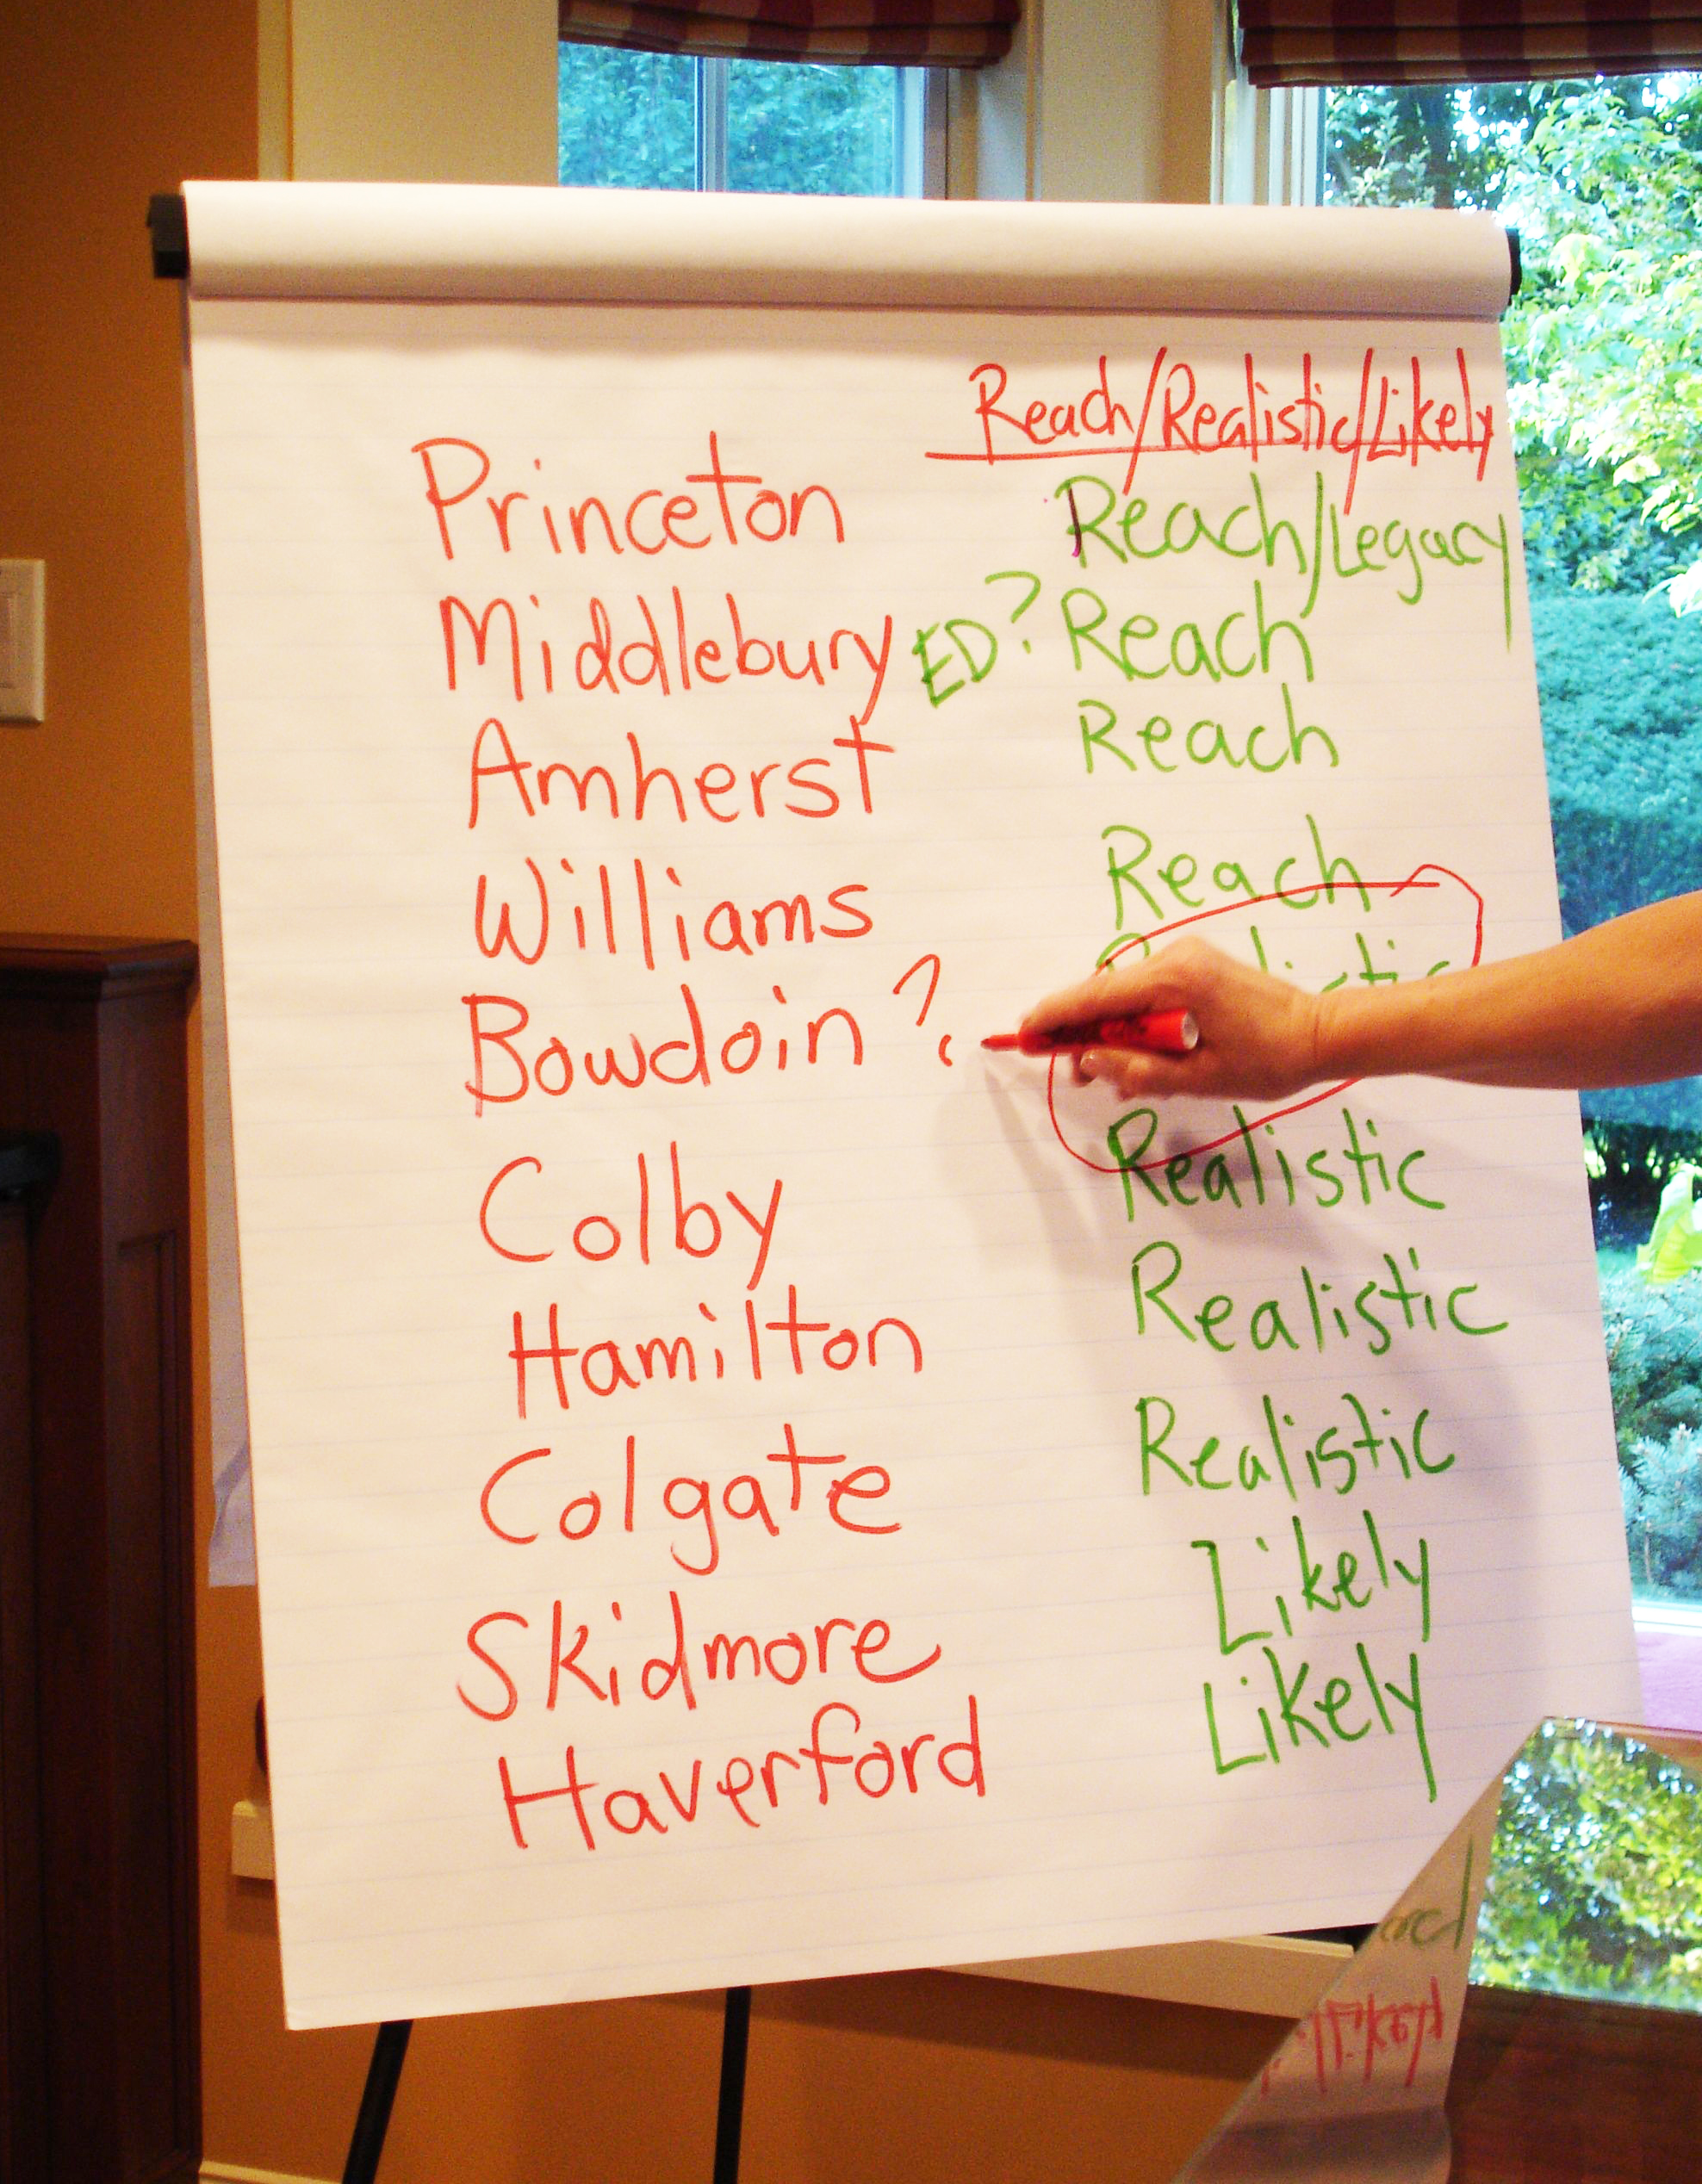 Reach/Realistic/Likely
Princeton Reach/Legacy
Middlebury ED? Reach
Amherst Reach
Williams Reach
Bowdoin ?
Colby Realistic
Hamilton Realistic
Colgate Realistic
Skidmore Likely
Haverford Likely